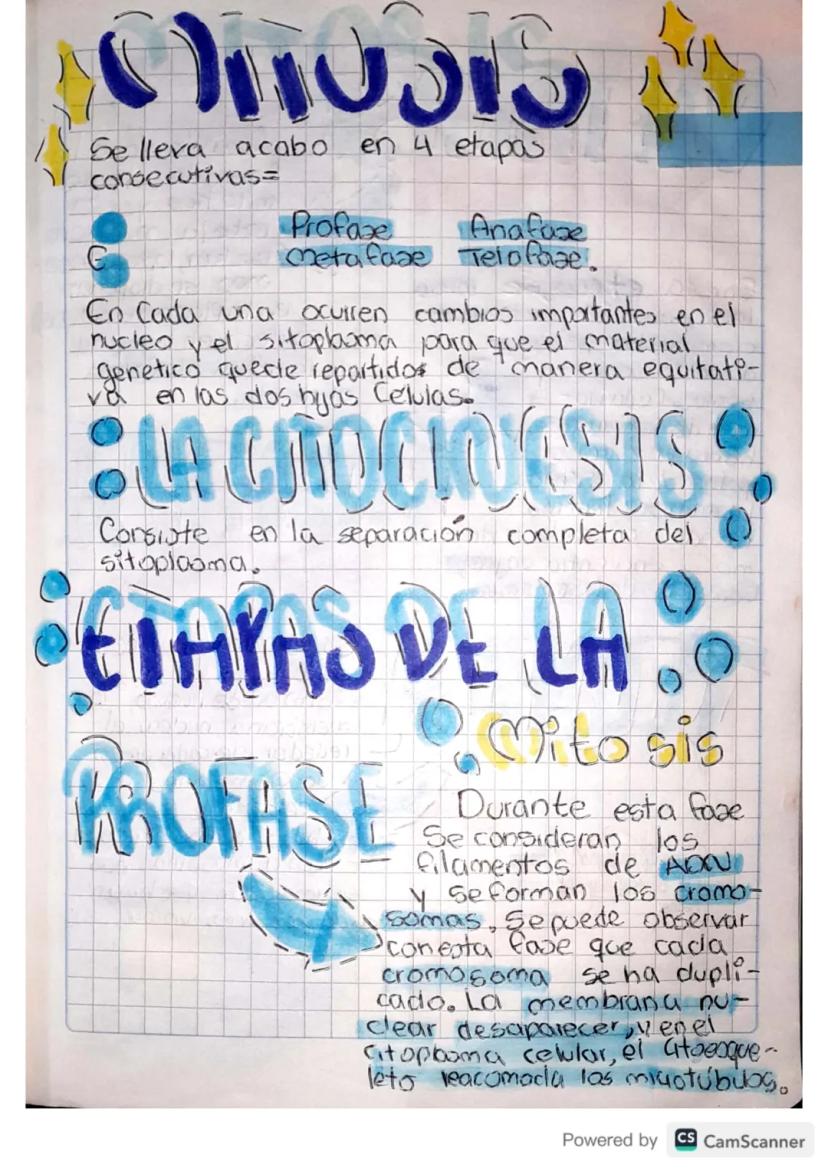 MITOSIS
Se lleva acabo en 4 etapas
consecutivas=
Profase Anafase
metafase Telofase.
En Cada una ocurren cambios importantes en el
nucleo y el sitoplasma para que el material
genetico quede repartidos de manera equitati-
va en las dos hijas Celulas.
LA CITOCINESIS
Consiste en la separación completa del
sitoplasma.
ETAPAS DE LA
Mitosis
PROFASE
Durante esta fase
Se consideran los
filamentos de ADN
y se forman los cromo-
somas. Se puede observar
con esta fase que cada
cromosoma se ha dupli-
cado. La membrana nu-
clear desaparecer, y en el
citoplasma celular, el citoesque-
leto reacomoda los microtúbulos.
Powered by CS CamScanner